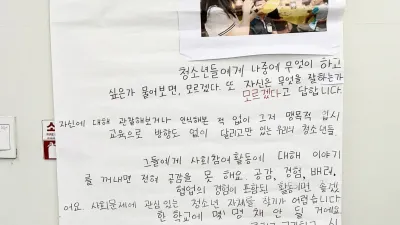 청소년들에게 나중에 무엇이 하고
싶은가 물어보면, 모르겠다. 또 자신은 무엇을 잘하는가
모르겠다고 답합니다.
자신에 대해 관찰해보거나 인식해본 적 없이 그저 맹목적 입시
교육으로 방향도 없이 달리고만 있는 우리의 청소년들.
그들에게 사회참여활동에 대해 이야기
를 꺼내면 전혀 공감을 못 해요. 공감, 경험, 배려,
협업의 경험이 포함된 활동이면 좋겠
어요. 사회문제에 관심 있는 청소년 자체를 찾기가 어렵습니다
한 학교에 몇 명 채 안 될 거에요.